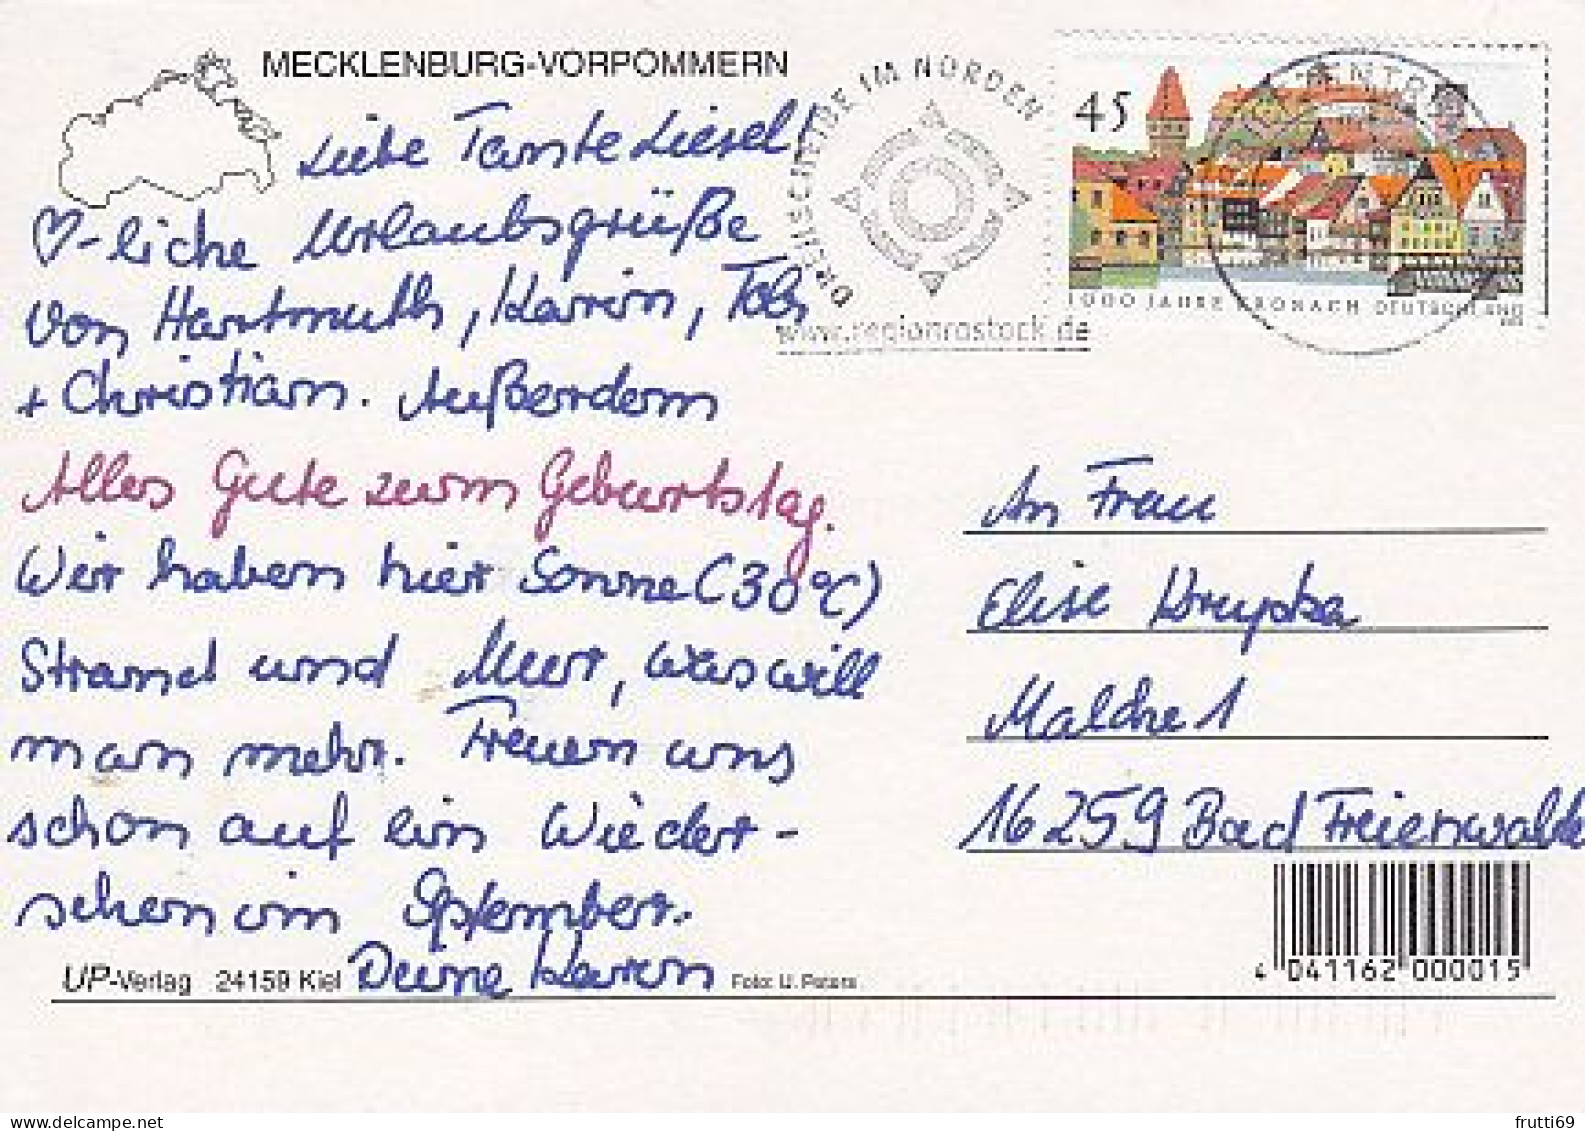 MECKLENBURG-VORPOMMERN
Liebe Tante Liesel!
♡-liche Urlaubsgrüße
von Hartmuth, Karin, Tobi
+ Christian. Außerdem
Alles Gute zum Geburtstag.
Wir haben hier Sonne (30°C)
Strand und Meer, was will
man mehr. Freuen uns
schon auf ein Wieder-
sehen im September.
Deine Karin
UP-Verlag 24159 Kiel
Foto: U. Peters
DREHSCHEIBE IM NORDEN
www.regionrostock.de
45
1000 JAHRE KRONACH DEUTSCHLAND
An Frau
Elise
Malche 1
16259 Bad Freienwalde
4 041162 000015
frutti69